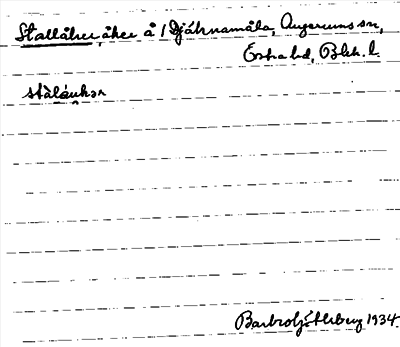 Stallåker åker å 1 Djáknamåla, Augerums sn,
Östra hd, Blek. l.
stàláukər
Barbro Götlberg 1934.